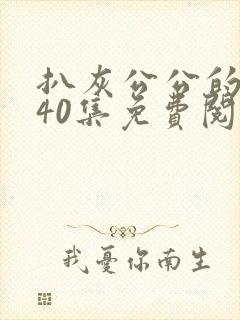 扒灰公公的
40集免費閱
我憂你南生